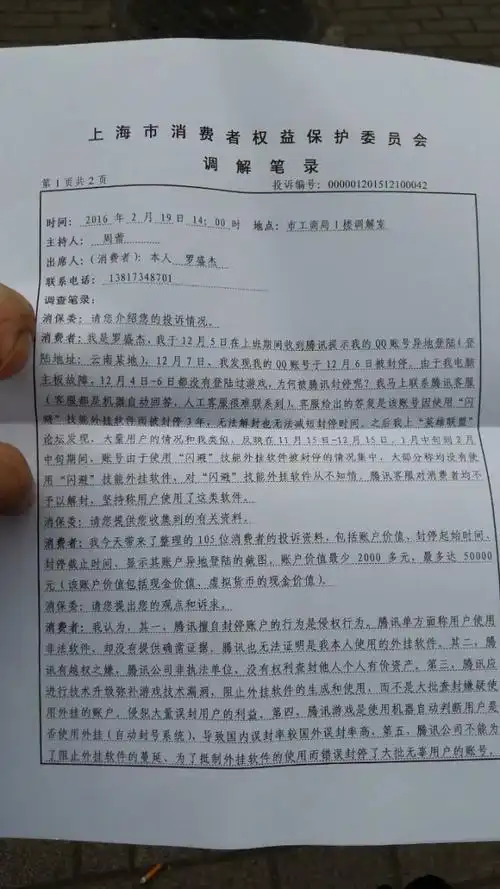 上海市消费者权益保护委员会
调解笔录
第1页共2页 投诉编号：000001201512100042
时间：2016年2月19日14：00时 地点：市工商局1楼调解室
主持人：周蕾
出席人：(消费者)：本人 罗盛杰
联系电话：13817348701
调查笔录：
消保委：请您介绍您的投诉情况。
消费者：我是罗盛杰，我于12月5日在上班期间收到腾讯提示我的QQ账号异地登陆（登
陆地址：云南某地），12月7日，我发现我的QQ账号于12月6日被封停。由于我电脑
主板故障，12月4日-6日都没有登陆过游戏，为何被腾讯封停呢？我马上联系腾讯客服
（客服都是机器自动回答，人工客服很难联系到）。客服给出的答复是该账号因使用“闪
避”技能外挂软件而被封停3年，无法解封也无法减短封停时间。之后我上“英雄联盟”
论坛发现，大量用户的情况和我类似，反映在11月15日-12月15日，1月中旬到2月
中旬期间，账号由于使用“闪避”技能外挂软件被封停的情况集中，大部分称均没有使
用“闪避”技能外挂软件，对“闪避”技能外挂软件从不知情。腾讯客服对消费者均不
予以解封，坚持称用户使用了这类软件。
消保委：请您提供您收集到的有关资料。
消费者：我今天带来了整理的105位消费者的投诉资料，包括账户价值、封停起始时间、
封停截止时间、显示其账户异地登陆的截图。账户价值最少2000多元，最多达50000
元（该账户价值包括现金价值、虚拟货币的现金价值）。
消保委：请您提出您的观点和诉求。
消费者：我认为，其一，腾讯擅自封停账户的行为是侵权行为。腾讯单方面称用户使用
非法软件，却没有提供确凿证据，腾讯也无法证明是我本人使用的外挂软件。其二，腾
讯有越权之嫌，腾讯公司非执法单位，没有权利查封他人个人有价资产。第三，腾讯应
进行技术升级弥补游戏技术漏洞，阻止外挂软件的生成和使用，而不是大批查封嫌疑使
用外挂的账户，侵犯大量误封用户的利益。第四，腾讯游戏是使用机器自动判断用户是
否使用外挂（自动封号系统），导致国内误封率较国外误封率高。第五，腾讯公司不能为
了阻止外挂软件的蔓延、为了抵制外挂软件的使用而错误封停了大批无辜用户的账号，